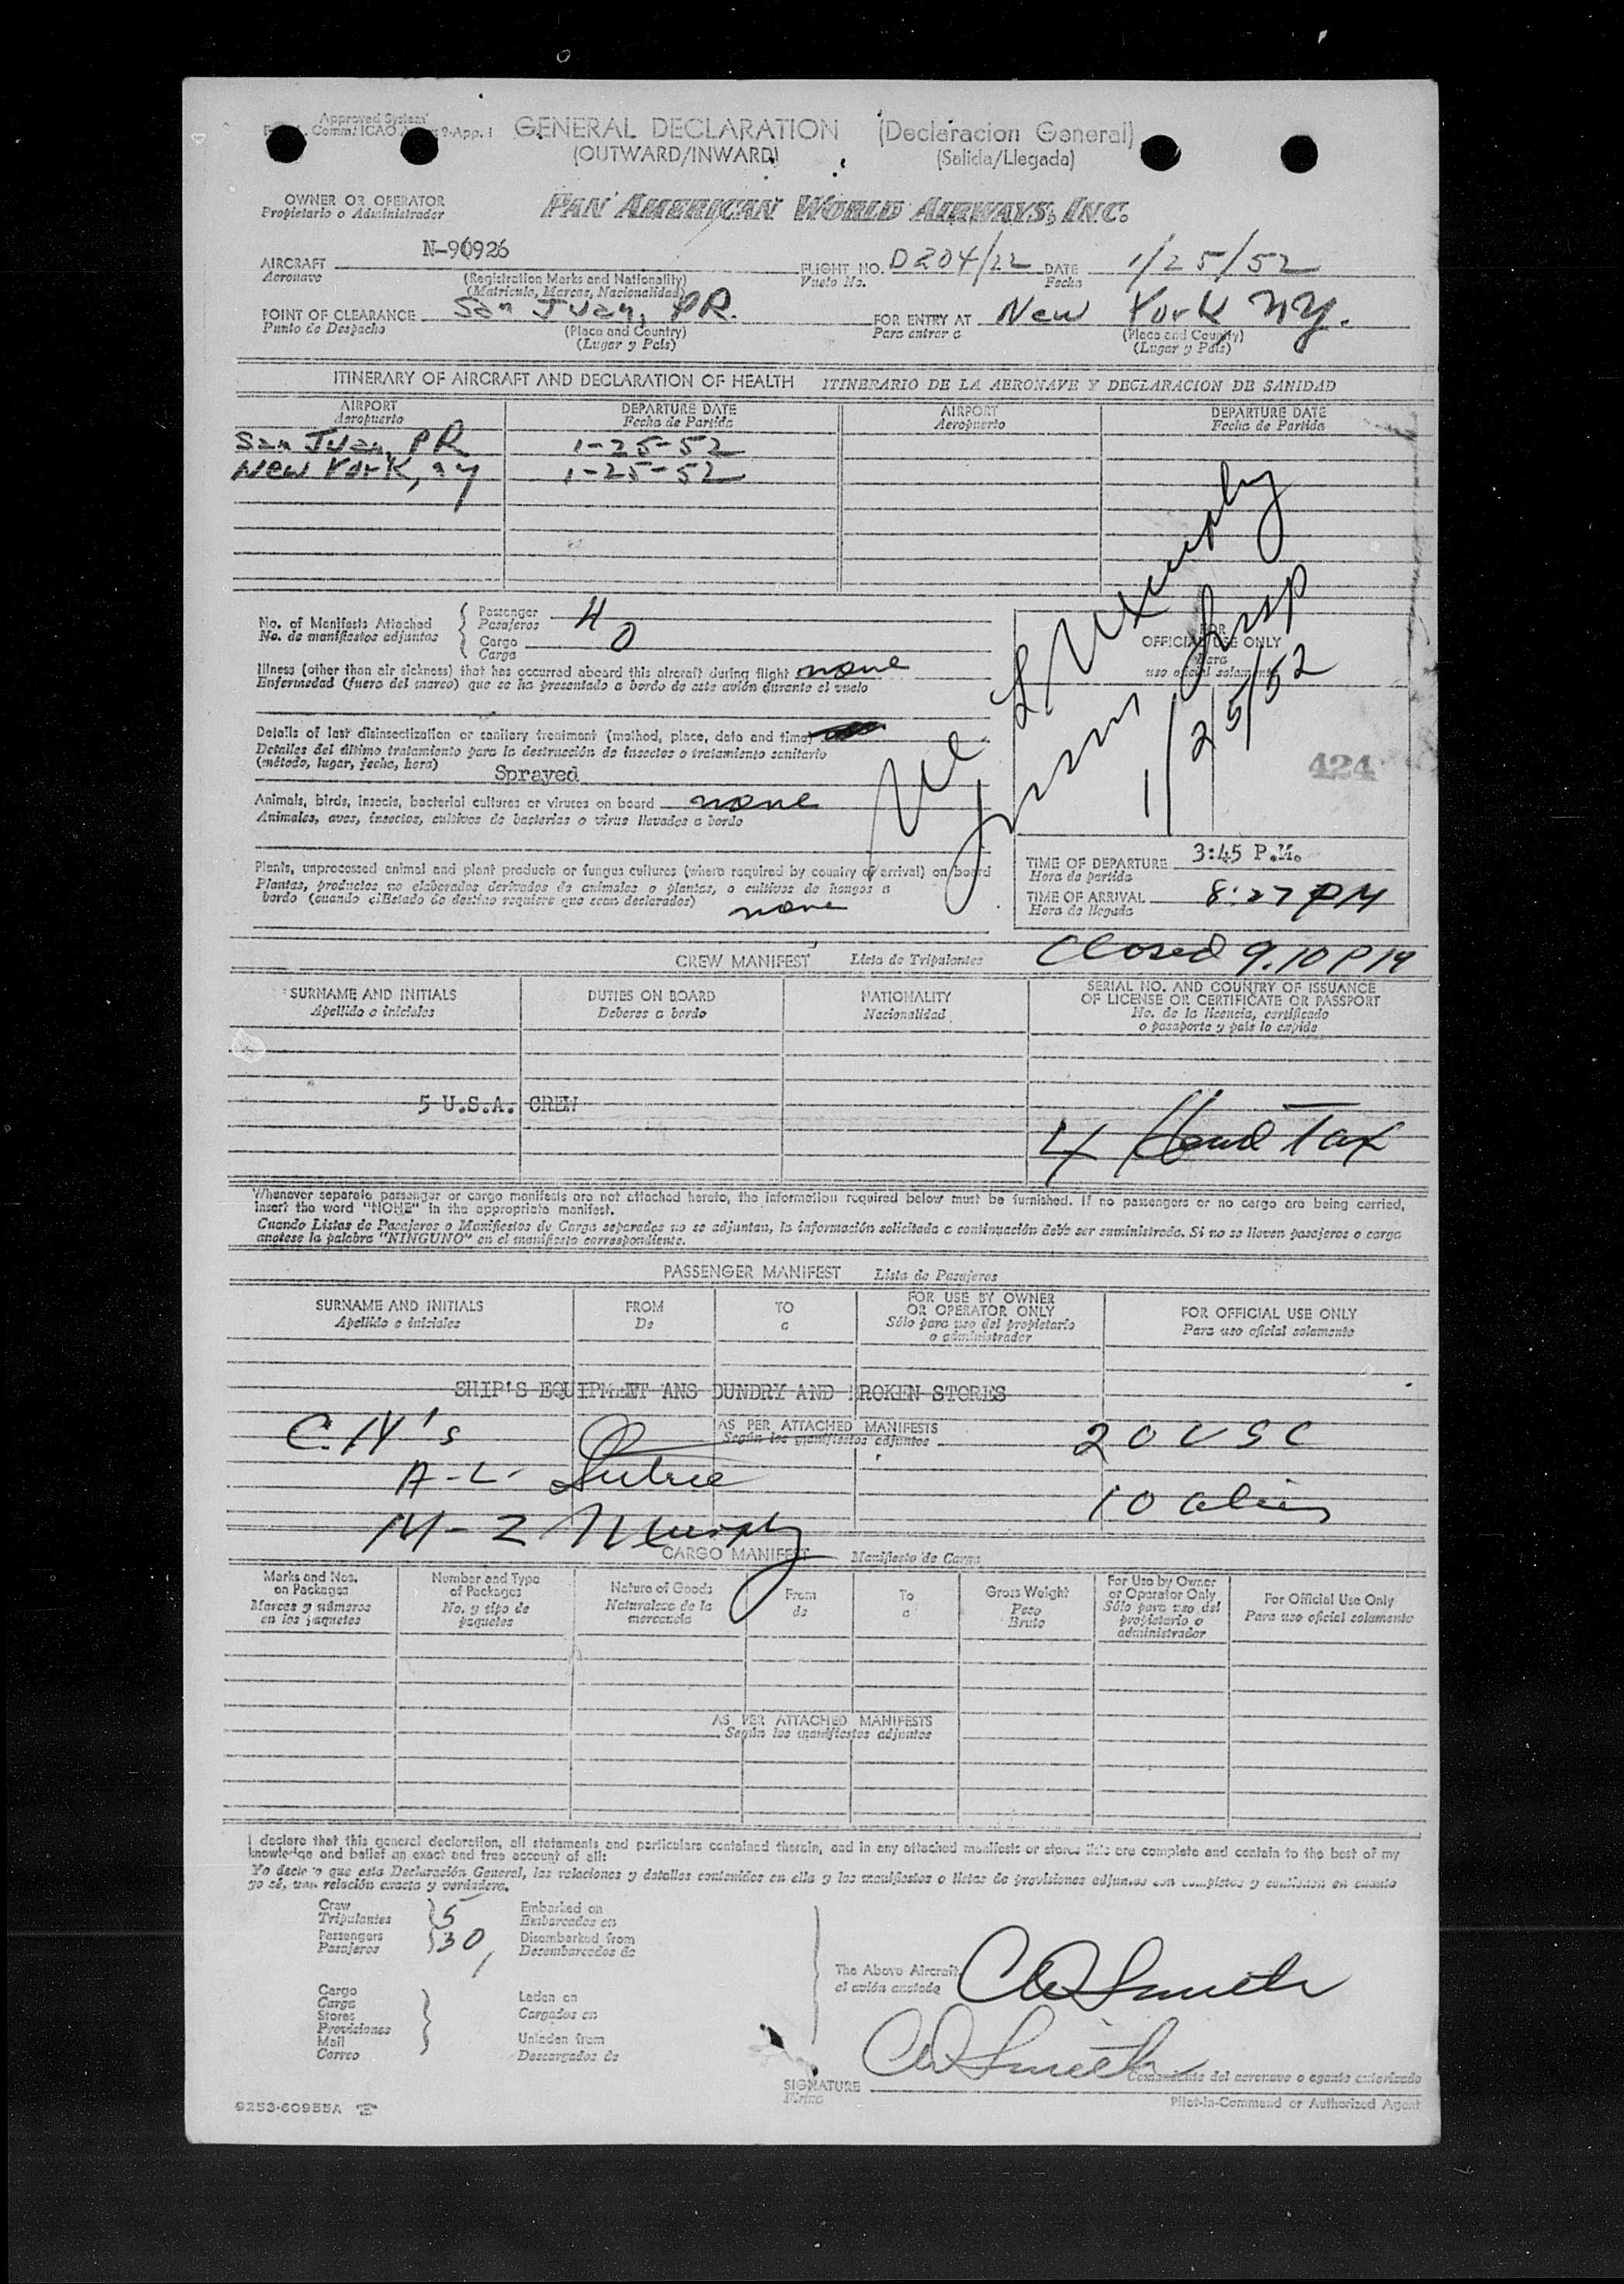 Approved System
Comm: ICAO 9-App. 1
GENERAL DECLARATION (Declaracion General)
(OUTWARD/INWARD) (Salida/Llegada)
OWNER OR OPERATOR
Propietario o Administrador
PAN AMERICAN WORLD AIRWAYS, INC.
AIRCRAFT N-90926 FLIGHT NO. D204/22 DATE 1/25/52
Aeronave (Registration Marks and Nationality) Vuelo No. Fecha
(Matricula, Marcas, Nacionalidad)
POINT OF CLEARANCE San Juan, PR. FOR ENTRY AT New York NY.
Punto de Despacho (Place and Country) Para entrar a (Place and Country)
(Lugar y País) (Lugar y País)
ITINERARY OF AIRCRAFT AND DECLARATION OF HEALTH ITINERARIO DE LA AERONAVE Y DECLARACION DE SANIDAD
AIRPORT DEPARTURE DATE AIRPORT DEPARTURE DATE
Aeropuerto Fecha de Partida Aeropuerto Fecha de Partida
San Juan, PR 1-25-52
New York, ny 1-25-52
No. of Manifests Attached Passenger 4
No. de manifiestos adjuntos Pasajeros
Cargo 0
Carga
Illness (other than air sickness) that has occurred aboard this aircraft during flight none
Enfermedad (fuera del mareo) que se ha presentado a bordo de este avión durante el vuelo
Details of last disinsectization or sanitary treatment (method, place, date and time)
Detalles del último tratamiento para la destrucción de insectos o tratamiento sanitario
(método, lugar, fecha, hora)
Sprayed
Animals, birds, insects, bacterial cultures or viruses on board none
Animales, aves, insectos, cultivos de bacterias o virus llevados a bordo
Plants, unprocessed animal and plant products or fungus cultures (where required by country of arrival) on board
Plantas, productos no elaborados derivados de animales o plantas, o cultivos de hongos a
bordo (cuando el Estado de destino requiere que sean declarados) none
FOR
OFFICIAL USE ONLY
Para
uso oficial solamente
Murphy
Insp
1/25/52
424
TIME OF DEPARTURE 3:45 P.M.
Hora de partida
TIME OF ARRIVAL 8:27 PM
Hora de llegada
Closed 9.10 PM
CREW MANIFEST Lista de Tripulantes
SURNAME AND INITIALS DUTIES ON BOARD NATIONALITY SERIAL NO. AND COUNTRY OF ISSUANCE
Apellido e iniciales Deberes a bordo Nacionalidad OF LICENSE OR CERTIFICATE OR PASSPORT
No. de la licencia, certificado
o pasaporte y país lo expide
5 U.S.A. CREW
4 Head Tax
Whenever separate passenger or cargo manifests are not attached hereto, the information required below must be furnished. If no passengers or no cargo are being carried,
insert the word "NONE" in the appropriate manifest.
Cuando Listas de Pasajeros o Manifiestos de Carga separados no se adjuntan, la información solicitada a continuación debe ser suministrada. Si no se llevan pasajeros o carga
anotese la palabra "NINGUNO" en el manifiesto correspondiente.
PASSENGER MANIFEST Lista de Pasajeros
SURNAME AND INITIALS FROM TO FOR USE BY OWNER FOR OFFICIAL USE ONLY
Apellido e iniciales De a OR OPERATOR ONLY Para uso oficial solamente
Sólo para uso del propietario
o administrador
SHIP'S EQUIPMENT ANS DUNDRY AND BROKEN STORES
AS PER ATTACHED MANIFESTS
Según los manifiestos adjuntos
C.H's 20 USC
A-L-
10 alien
M-Z Murphy
CARGO MANIFEST Manifiesto de Carga
Marks and Nos. Number and Type Nature of Goods From To Gross Weight For Use by Owner For Official Use Only
on Packages of Packages Naturaleza de la de a Peso or Operator Only Para uso oficial solamente
Marcas y números No. y tipo de mercancia Bruto Sólo para uso del
en los paquetes paquetes propietario o
administrador
AS PER ATTACHED MANIFESTS
Según los manifiestos adjuntos
I declare that this general declaration, all statements and particulars contained therein, and in any attached manifests or stores lists are complete and contain to the best of my
knowledge and belief an exact and true account of all:
Yo declaro que esta Declaración General, las relaciones y detalles contenidos en ella y los manifiestos o listas de provisiones adjuntos son completos y contienen en cuanto
yo sé, una relación exacta y verdadera.
Crew 5 Embarked on
Tripulantes Embarcados en
Passengers 30 Disembarked from
Pasajeros Desembarcados de
Cargo Laden on
Carga Cargados en
Stores
Provisiones
Mail Unladen from
Correo Descargados de
The Above Aircraft
el avión anotado
CW Smith
CW Smith
SIGNATURE Comandante del aeronave o agente autorizado
Firma Pilot-in-Command or Authorized Agent
9253-60955A